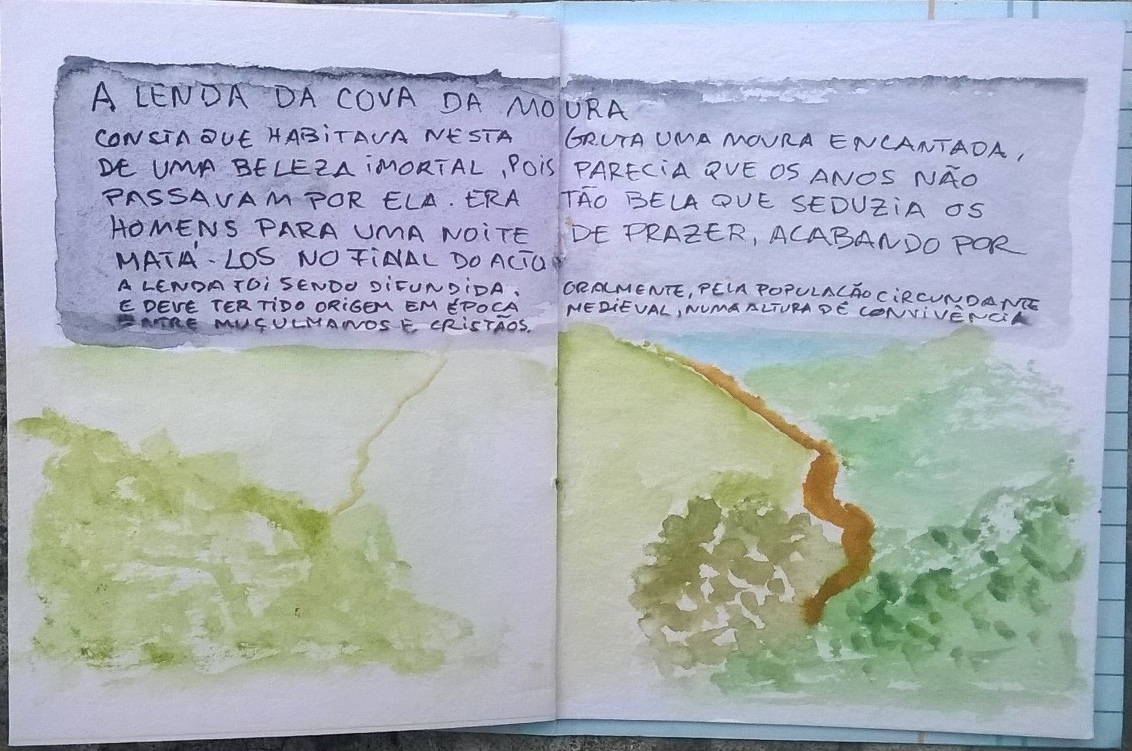 A LENDA DA COVA DA MOURA
CONSTA QUE HABITAVA NESTA GRUTA UMA MOURA ENCANTADA,
DE UMA BELEZA IMORTAL, POIS PARECIA QUE OS ANOS NÃO
PASSAVAM POR ELA. ERA TÃO BELA QUE SEDUZIA OS
HOMENS PARA UMA NOITE DE PRAZER, ACABANDO POR
MATÁ-LOS NO FINAL DO ACTO.
A LENDA FOI SENDO DIFUNDIDA, ORALMENTE, PELA POPULAÇÃO CIRCUNDANTE
E DEVE TER TIDO ORIGEM EM ÉPOCA MEDIEVAL, NUMA ALTURA DE CONVIVÊNCIA
ENTRE MUÇULMANOS E CRISTÃOS.